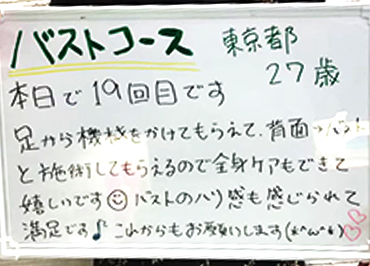 バストコース
東京都
27歳
本日で19回目です
足から機械をかけてもらえて、背面→バスト
と施術してもらえるので全身ケアもできて
嬉しいです☺ バストのハリ感も感じられて
満足です♪ これからもお願いします(*^ω^*)♡♡